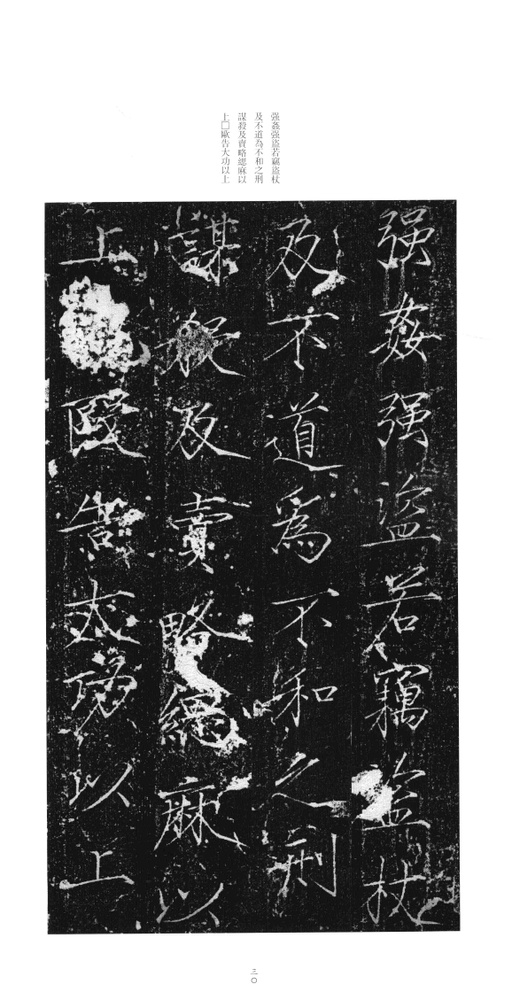 強姦強盜若竊盜杖
及不道為不和之刑
謀殺及賣略緦麻以
上□毆告大功以上
强姦强盜若竊盜杖
及不道為不和之刑
謀殺及賣略緦麻以
上毆告大功以上
三〇